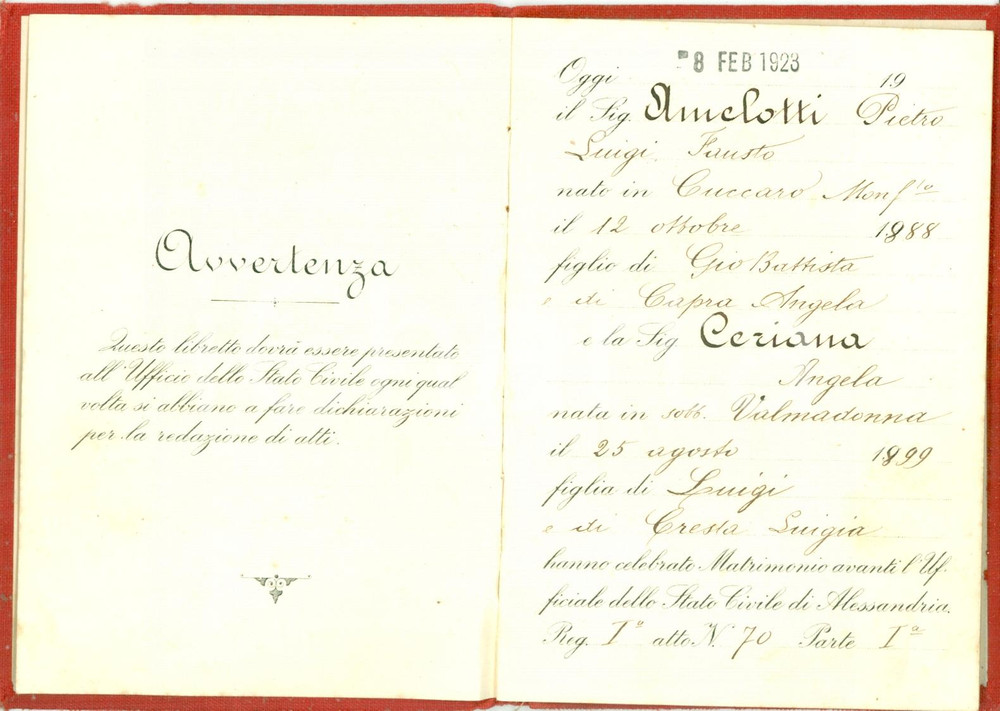 Avvertenza
Questo libretto dovrà essere presentato
all'Ufficio dello Stato Civile ogni qual
volta si abbiano a fare dichiarazioni
per la redazione di atti.
8 FEB 1923
Oggi 19
il Sig. Amelotti Pietro
Luigi Fausto
nato in Cuccaro Monf.to
il 12 ottobre 1888
figlio di Gio Battista
e di Capra Angela
e la Sig Ceriana
Angela
nata in sobb. Valmadonna
il 25 agosto 1899
figlia di Luigi
e di Cresta Luigia
hanno celebrato Matrimonio avanti l'Uf-
ficiale dello Stato Civile di Alessandria.
Reg. I° atto N. 70 Parte Iª